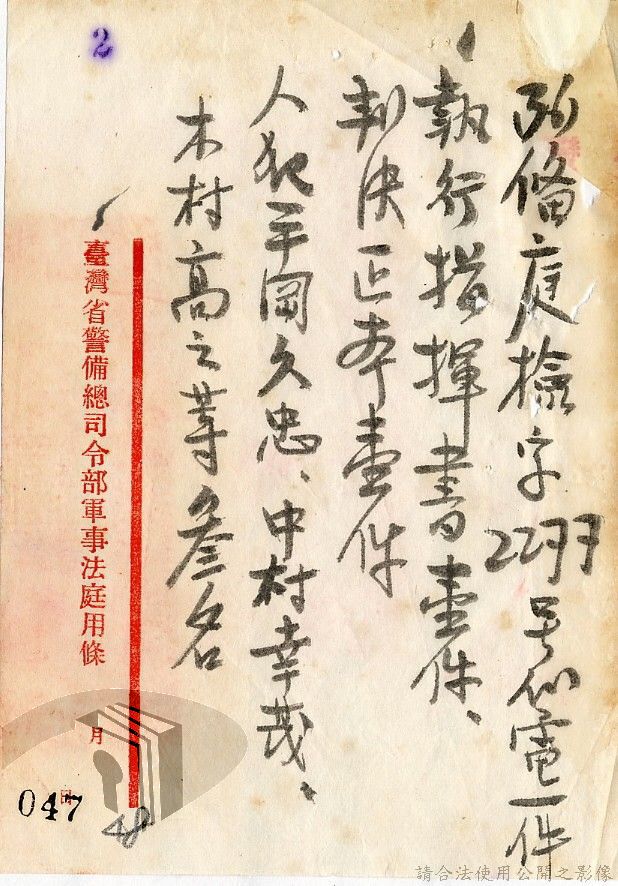 2
備庭檢字 號代電一件
執行指揮書壹件、
判決正本壹件
人犯平岡久忠、中村幸哉、
木村高之等叁名
臺灣省警備總司令部軍事法庭用條
月
日
047
48
請合法使用公開之影像